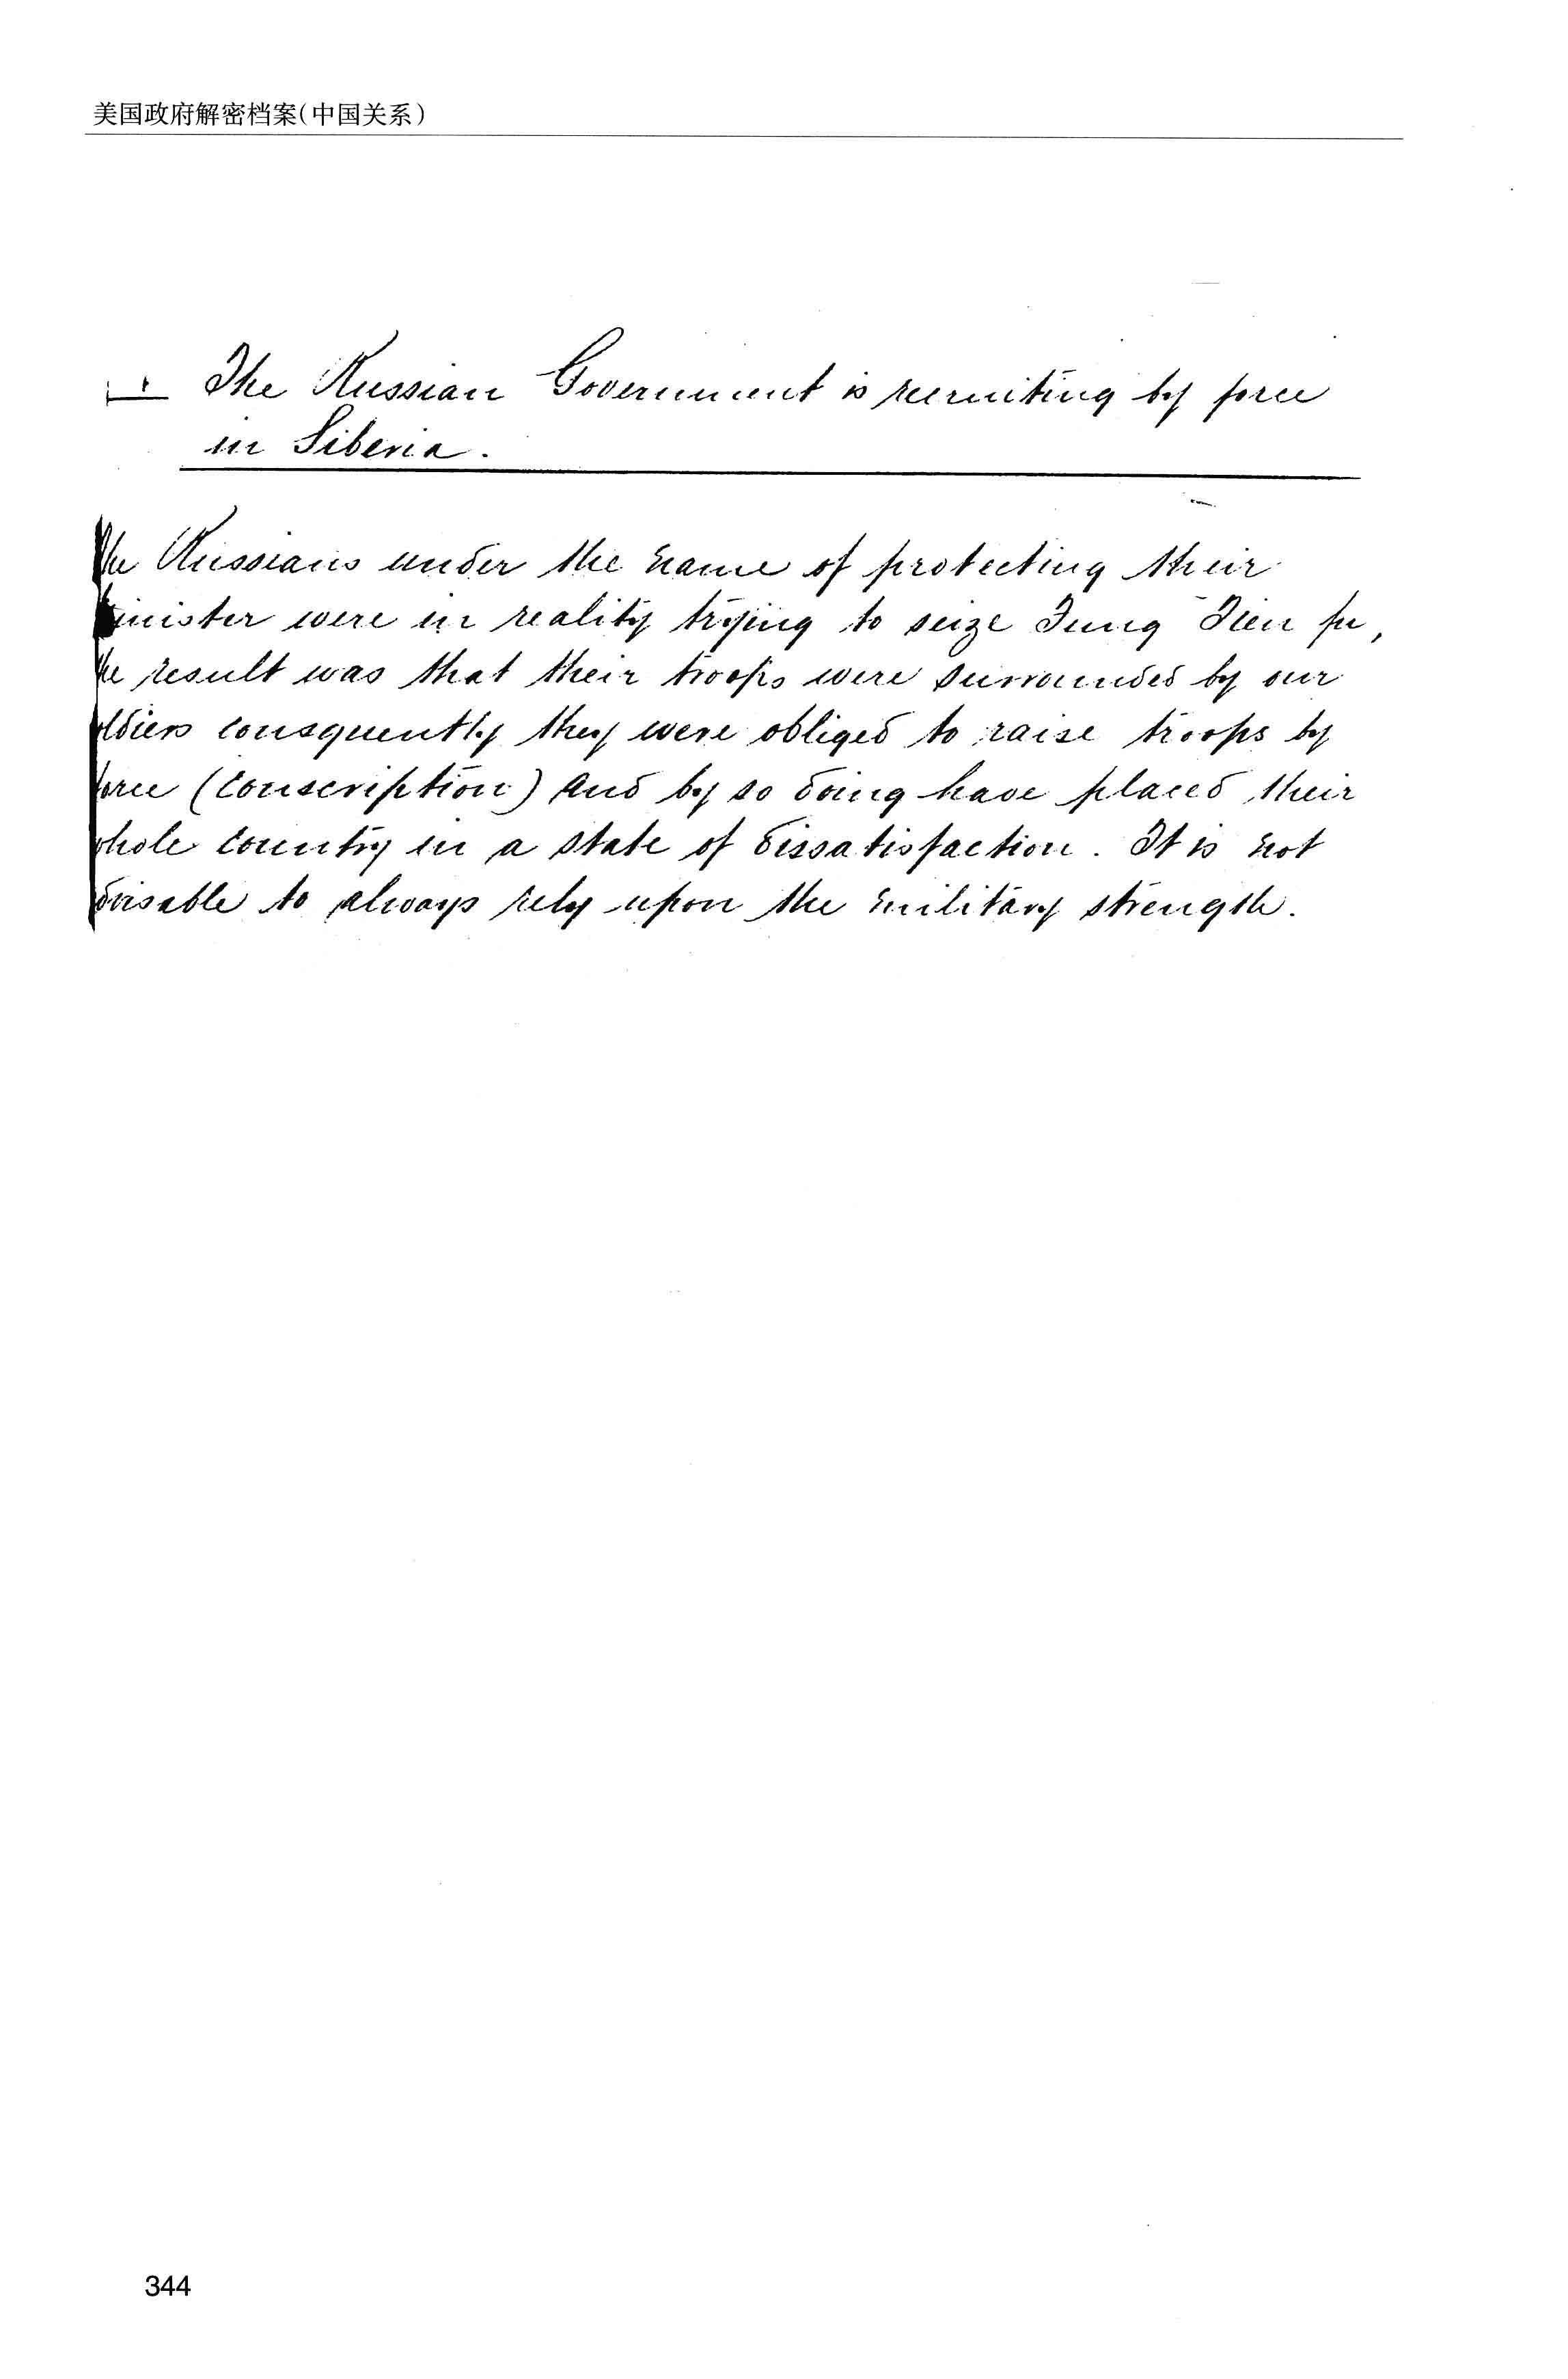 美国政府解密档案(中国关系)
The Russian Government is recruiting by force
in Siberia.
The Russians under the name of protecting their
minister were in reality trying to seize Tung Tien fu,
the result was that their troops were surrounded by our
soldiers consquently they were obliged to raise troops by
force (conscription) and by so doing have placed their
whole country in a state of dissatisfaction. It is not
advisable to always rely upon the military strength.
344